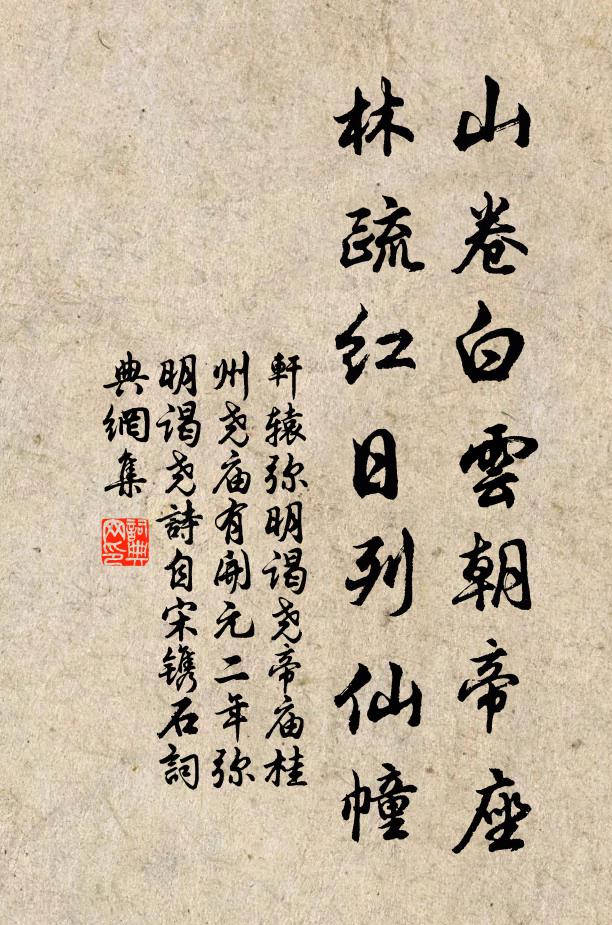 山卷白雲朝帝座
林疏红日列仙幢
軒辕弥明谒尧帝庙桂
州尧庙有開元二年弥
明谒尧詩自宋镌石詞
典網集
詞典
网印